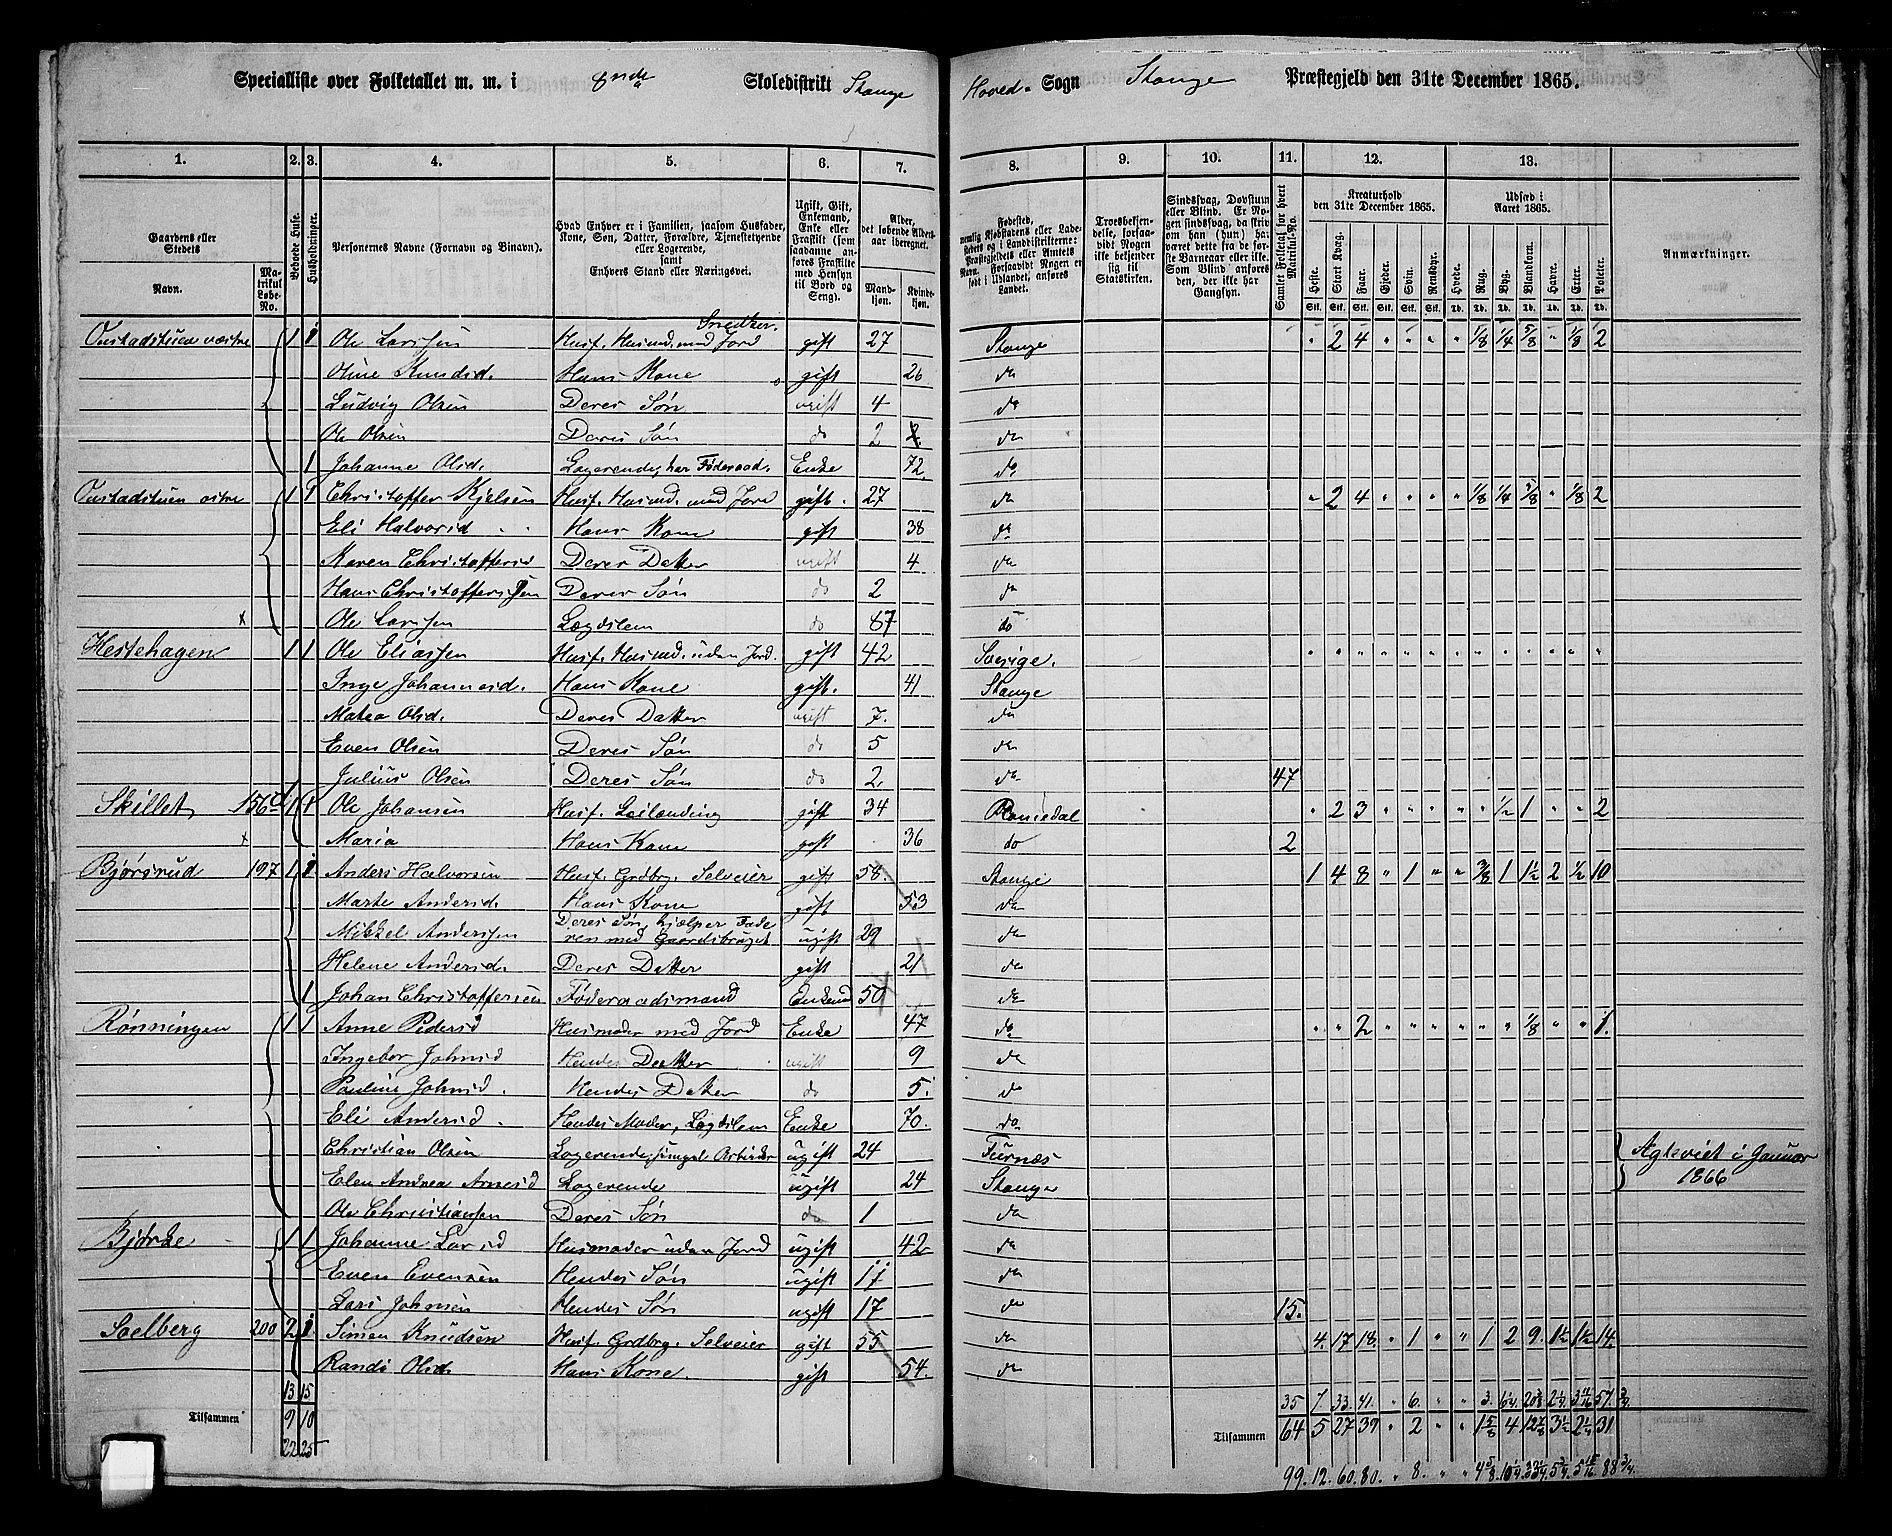 Specialliste over Folketallet m. m. i 8nde Skoledistrikt Stange Hoved- Sogn Stange Præstegjeld den 31te December 1865.
1. 2. 3. 4. 5. 6. 7. 8. 9. 10. 11. 12. 13.
Gaardens eller Stedets Navn. Matrikul Løbe-No. Beboede Huse. Husholdninger. Personernes Navne (Fornavn og Binavn). Hvad Enhver er i Familien, saasom Husfader, Kone, Søn, Datter, Forældre, Tjenestetyende eller Logerende, samt Enhvers Stand eller Næringsvei. Ugift, Gift, Enkemand, Enke eller Fraskilt (som saadanne anføres Fraskilte med Hensyn til Bord og Seng). Alder, det løbende Aldersaar iberegnet. Mandkjøn. Kvindekjøn.
Fødested, Troesbekjendelse, forsaavidt Nogen ikke bekjender sig til Statskirken. Sindssvag, Døvstum eller Blind. Samlet Folketal for hvert Matrikul-No. Kreaturhold den 31te December 1865. Udsæd i Aaret 1865. Anmærkninger.
Heste. Stort Kvæg. Faar. Gjeder. Svin. Rensdyr. Hvede. Rug. Byg. Blandkorn. Havre. Erter. Poteter.
Onstadstuen væstre 1 1 Ole Larssen Husf. Husmd. med Jord Snedker. gift 27 Stange " 2 4 " " " " 1/8 1/4 5/8 " 1/8 2
Oline Knudsd. Hans Kone gift 26 do
Ludvig Olsen Deres Søn ugift 4 do
Ole Olsen Deres Søn do 2 do
1 Johanne Olsd. Logerende, har Føderaad. Enke 72. do
Onstadstuen østre 1 1 Christoffer Kjelsen Husf. Husmd. med Jord gift. 27 do " 2 4 " " " " 1/8 1/4 5/8 " 1/8 2
Eli Halvorsd Hans Kone gift 38 do
Karen Christoffersd Deres Datter ugift 4 do
Hans Christoffersen Deres Søn do 2 do
x Ole Larssen Lægdslem do 87 do
Hestehagen 1 1 Ole Eliassen Husf. Husmd. uden Jord. gift 42 Sverige. " " " " " " " " " " " " "
Inge Johannesd. Hans Kone gift. 41 Stange
Matea Olsd. Deres Datter ugift 7. do
Even Olsen Deres Søn do 5 do
Julius Olsen Deres Søn do 2. do 47
Skillet 156 d 1 1 Ole Johansen Husf. Leilænding gift 34 Romedal " 2 3 " " " " " 1/2 1 " " 2
x Maria Hans Kone gift 36 do 2
Bjørsrud 197 1 1 Anders Halvorsen Husf. Grdbr. Selveier gift 58 Stange 1 4 8 " 1 " " 3/8 1 1 1/2 2 1/2 10
Marte Andersd. Hans Kone gift 53 do
Mikkel Anderssen Deres Søn, hjelper Fade
ren med Gaardsbruget ugift 29 do
Helene Andersd. Deres Datter gift 21 do
1 Johan Christoffersen Føderaadsmand Enkemd 50 do
Rønningen 1 1 Anne Pedersd Husmoder med Jord Enke 47 do " " 2 " " " " " " 1/8 " " 1.
Ingebor Johnsd Hendes Datter ugift 9 do
Pauline Johnsd. Hendes Datter do 5. do
Eli Andersd. Hendes Moder, Lægdslem Enke 70. do.
Christian Olsen Logerende, Arbeider ugift 24 Furnæs } i Januar
Elen Andrea Arnesd Logerende ugift 24 Stange 1866
Ole Christiansen Deres Søn do 1 do
Bjørke 1 1 Johanne Larsd Husmoder uden Jord ugift 42 do
Even Evensen Hendes Søn ugift 17 do
Lars Johnsen Hendes Søn ugift 17 do 15.
Soelberg 200 2 1 Simen Knudsen Husf. Grdbr. Selveier gift 55 do 4. 17 18. " 1 " " 1 2 9. 1 1/2 1 1/2 14.
Randi Olsd. Hans Kone. gift 54. do
13 15 35 7. 33. 41. " 6. " " 3. 57. 3/4
Tilsammen 9 10 Tilsammen 64 5 27 39 " 2 " " 1 5/8 4 12 7/8 3 1/2 2 1/4 31
22 25 99. 12. 60. 80. " 8. " " 4 5/8 88 3/4.